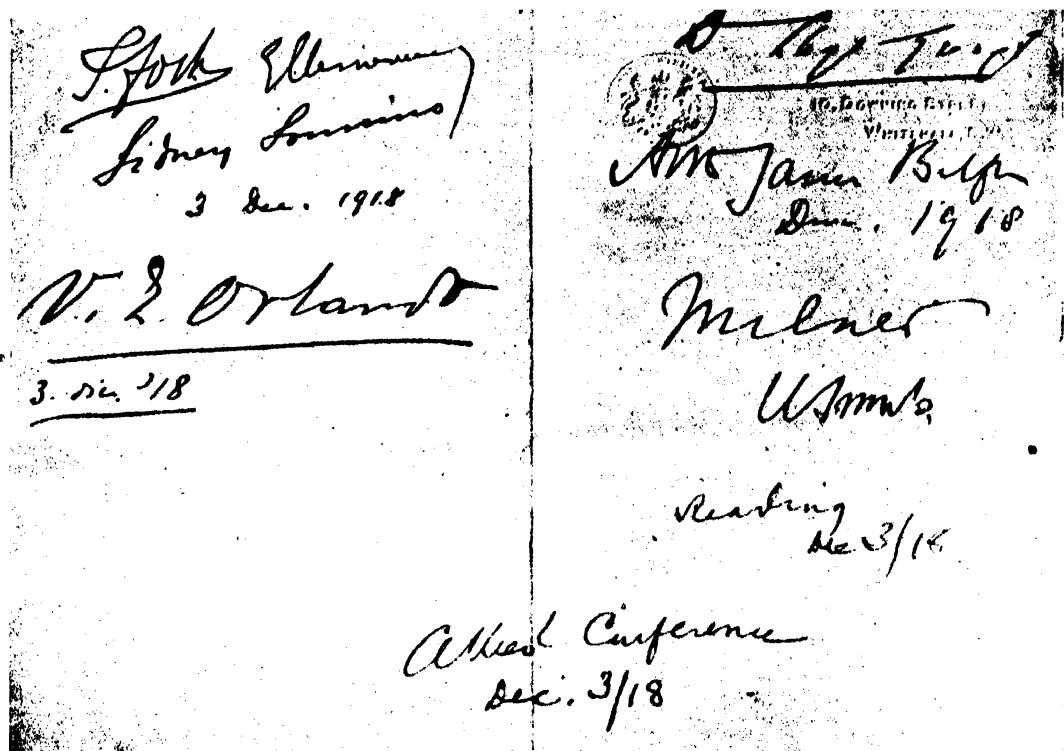 F. Foch
Sidney Sonnino
3 Dec. 1918
V. E. Orlando
3. dic. '18
D Lloyd George
10, Downing Street,
Whitehall, S.W.
James Balfour
Dec. 1918
Milner
Reading
Dec 3/18
Allied Conference
Dec. 3/18